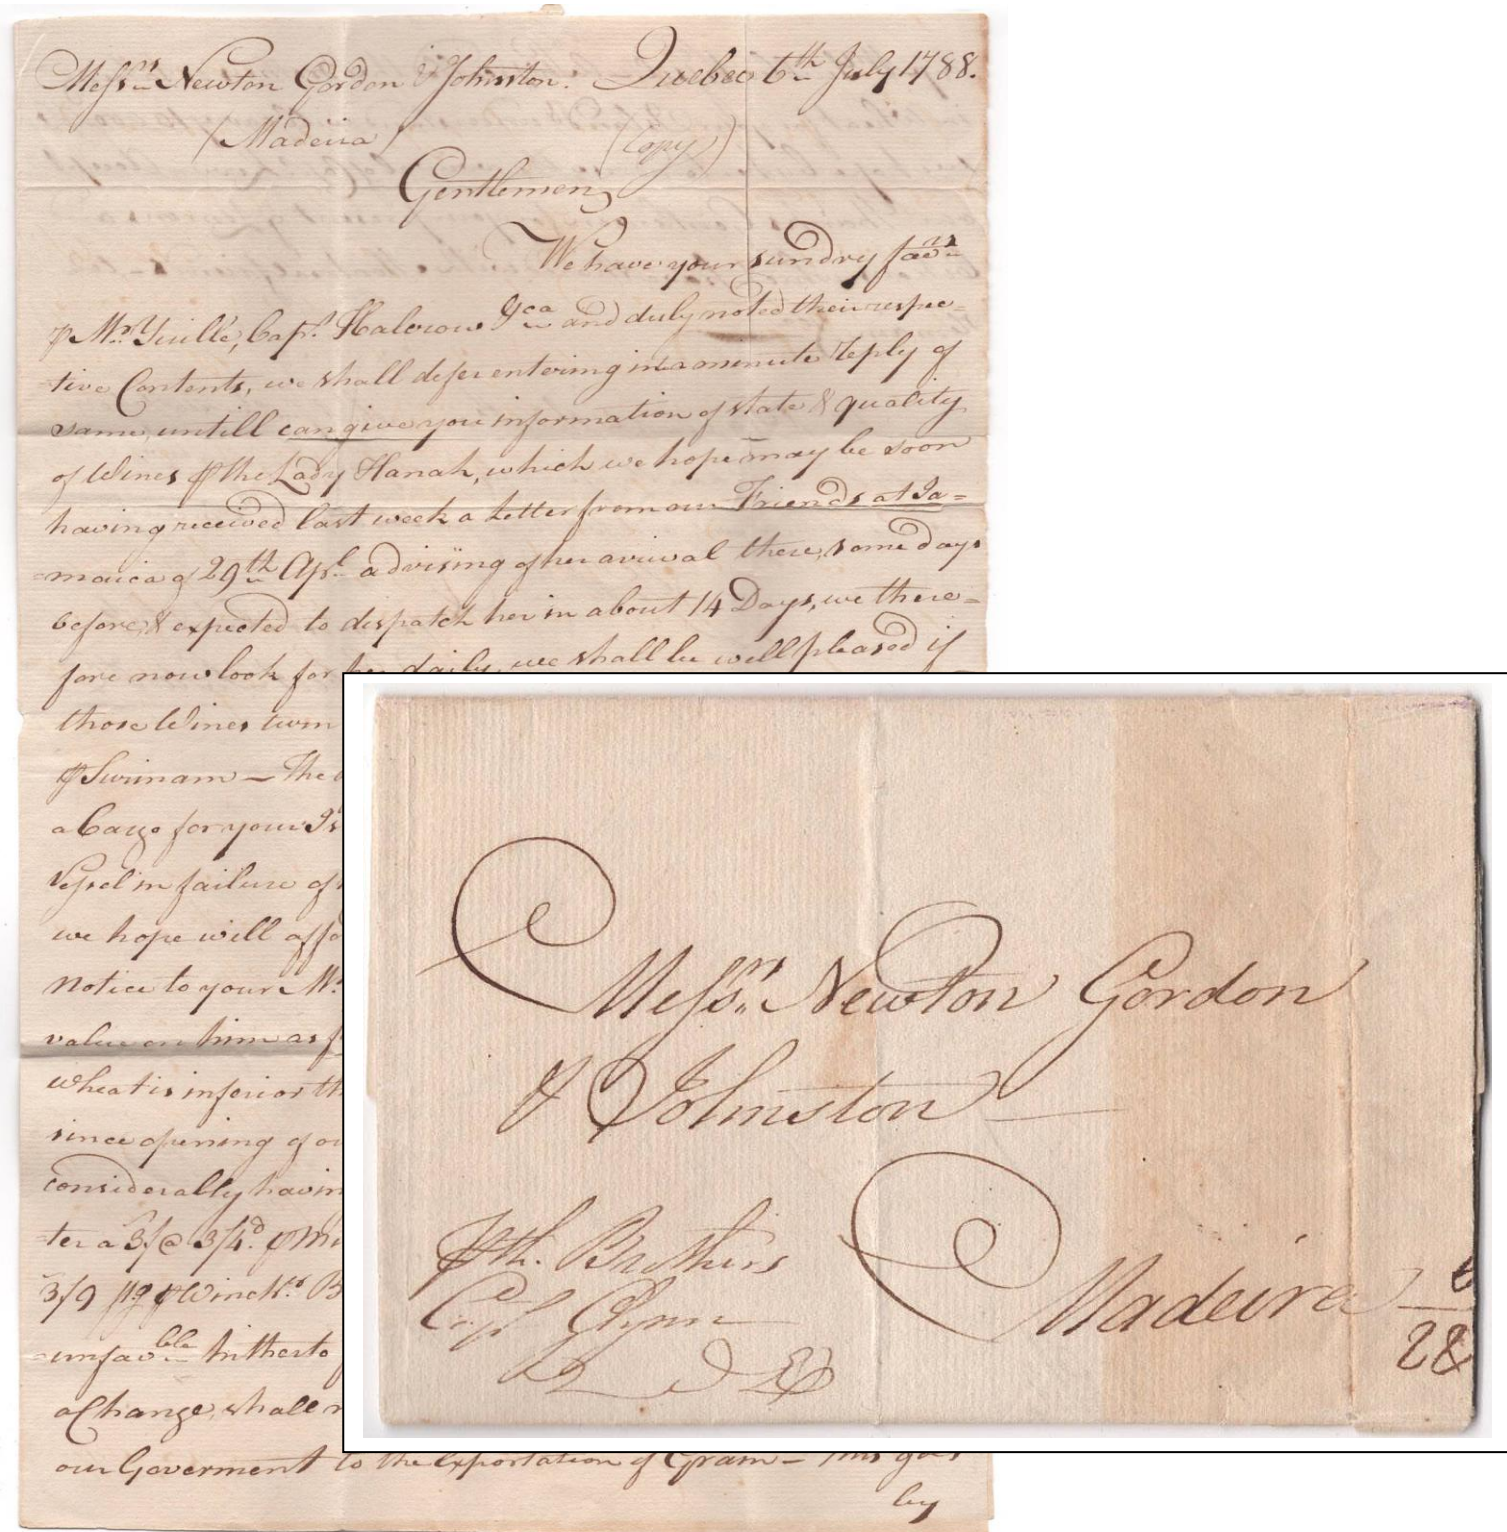 Messrs Newton Gordon & Johnston. Quebec 6th July 1788.
/Madeira/ (Copy)
Gentlemen,
We have your sundry favrs
⅌ Mr. Yuille, Capt. Halcrow &ca and duly noted their respec=
tive Contents, we shall defer entering in a minute reply of
same, untill can give you information of state & quality
of Wines ⅌ the Lady Hanah, which we hope may be soon
having received last week a Letter from our Friends at Ja=
maica of 29th Apl. advising of her arival there, some days
before, & expected to dispatch her in about 14 Days, we there=
fore now look for her daily, we shall be well pleased if
those Wines turn
⅌ Surinam — The
a Cargo for your Is
Vessel in failure of
we hope will affo
notice to your Mr.
value on him as f
wheat is inferior th
since opening of ou
considerally havin
ter a 3/ @ 3/4d. ⅌ Mi
3/9 ⅌ Winchr. B
unfavble hitherto
a Change, shall
our Goverment to the Exportation of Grain — This goes
by
Messrs. Newton Gordon
& Johnston
Madeira
⅌ th. Brothers
Capt Glynn
28